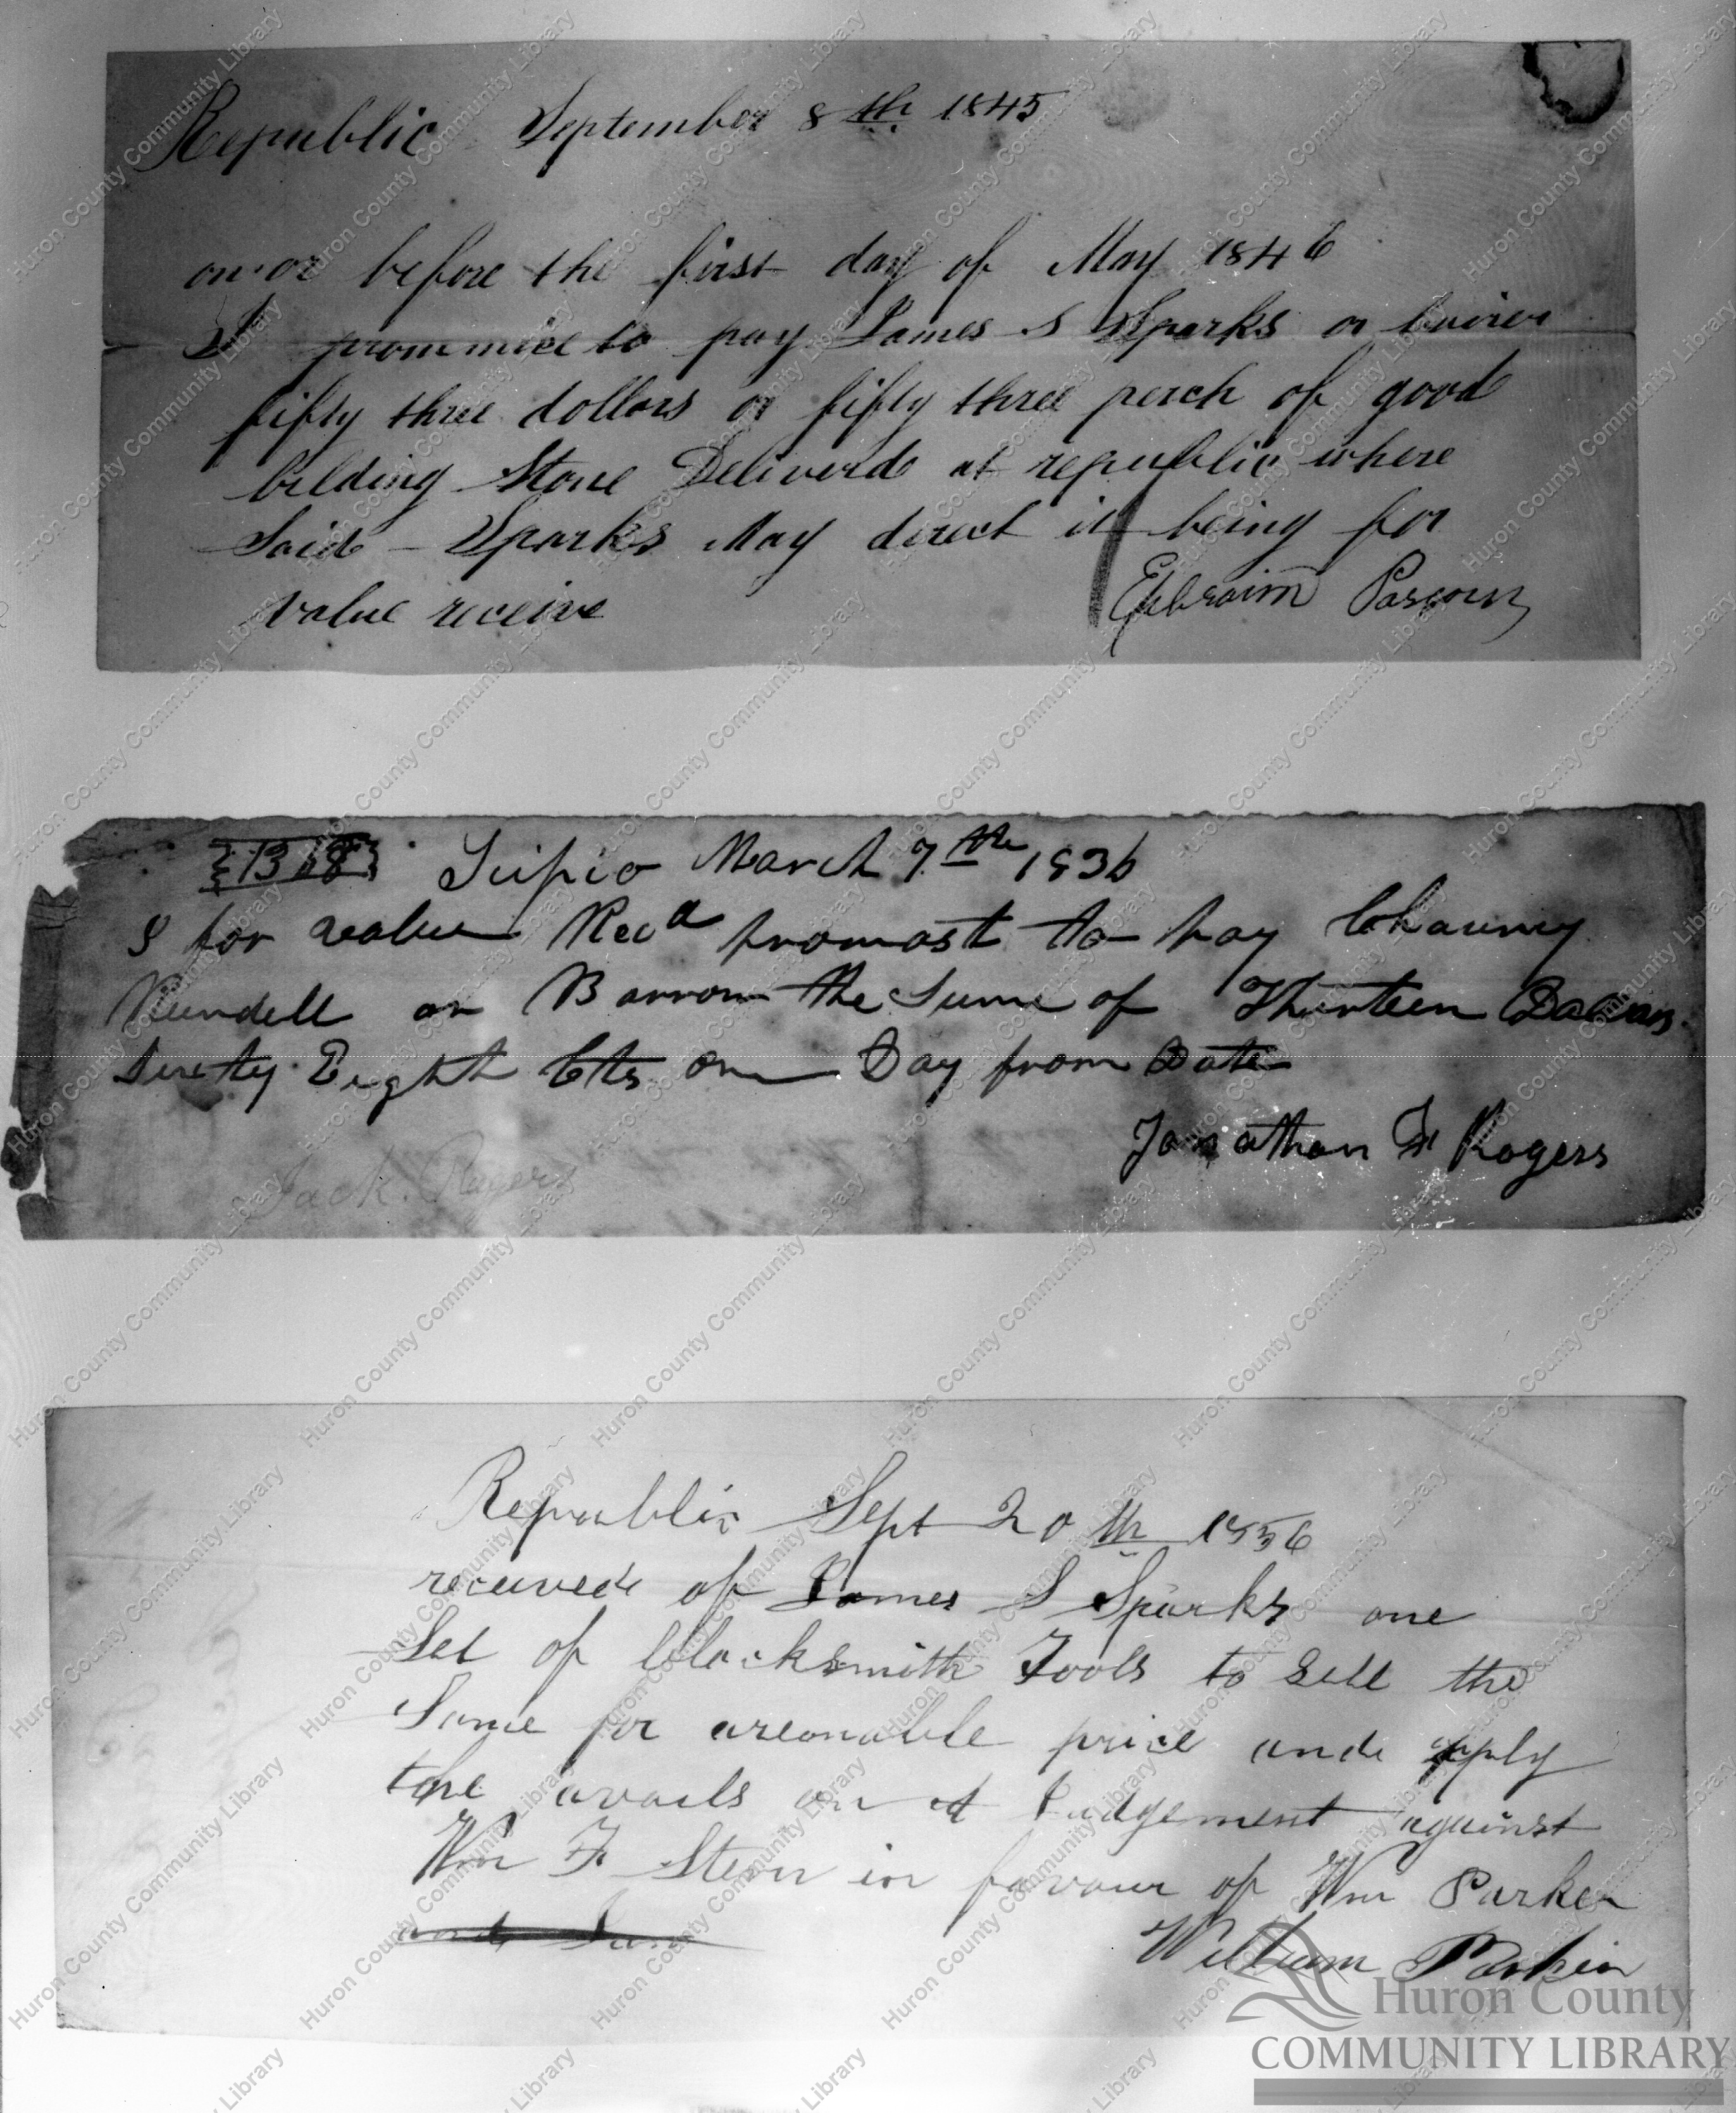 Republic September 8th 1845
on or before the first day of May 1846
I prommice to pay James S Sparks or bairer
fifty three dollars or fifty three perch of good
bilding Stone Deliverd at republic where
Said Sparks May direct it being for
value receive
Ephraim
{13 68} Scipio March 7th 1836
I for value Recd promast to pay Chauncy
Rundell or Barrow the Sume of Thirteen Dollars
Sixty Eight Cts One Day from Date
Jonathan F Rogers
Jack. Rogers
Republic Sept 20th 1856
received of James S Sparks one
Set of blacksmith Tools to Sell the
Same for areonable price and apply
the avails on a Judgement against
Wm F Stern in favour of Wm Parker
and
William Parker
Huron County
COMMUNITY LIBRARY